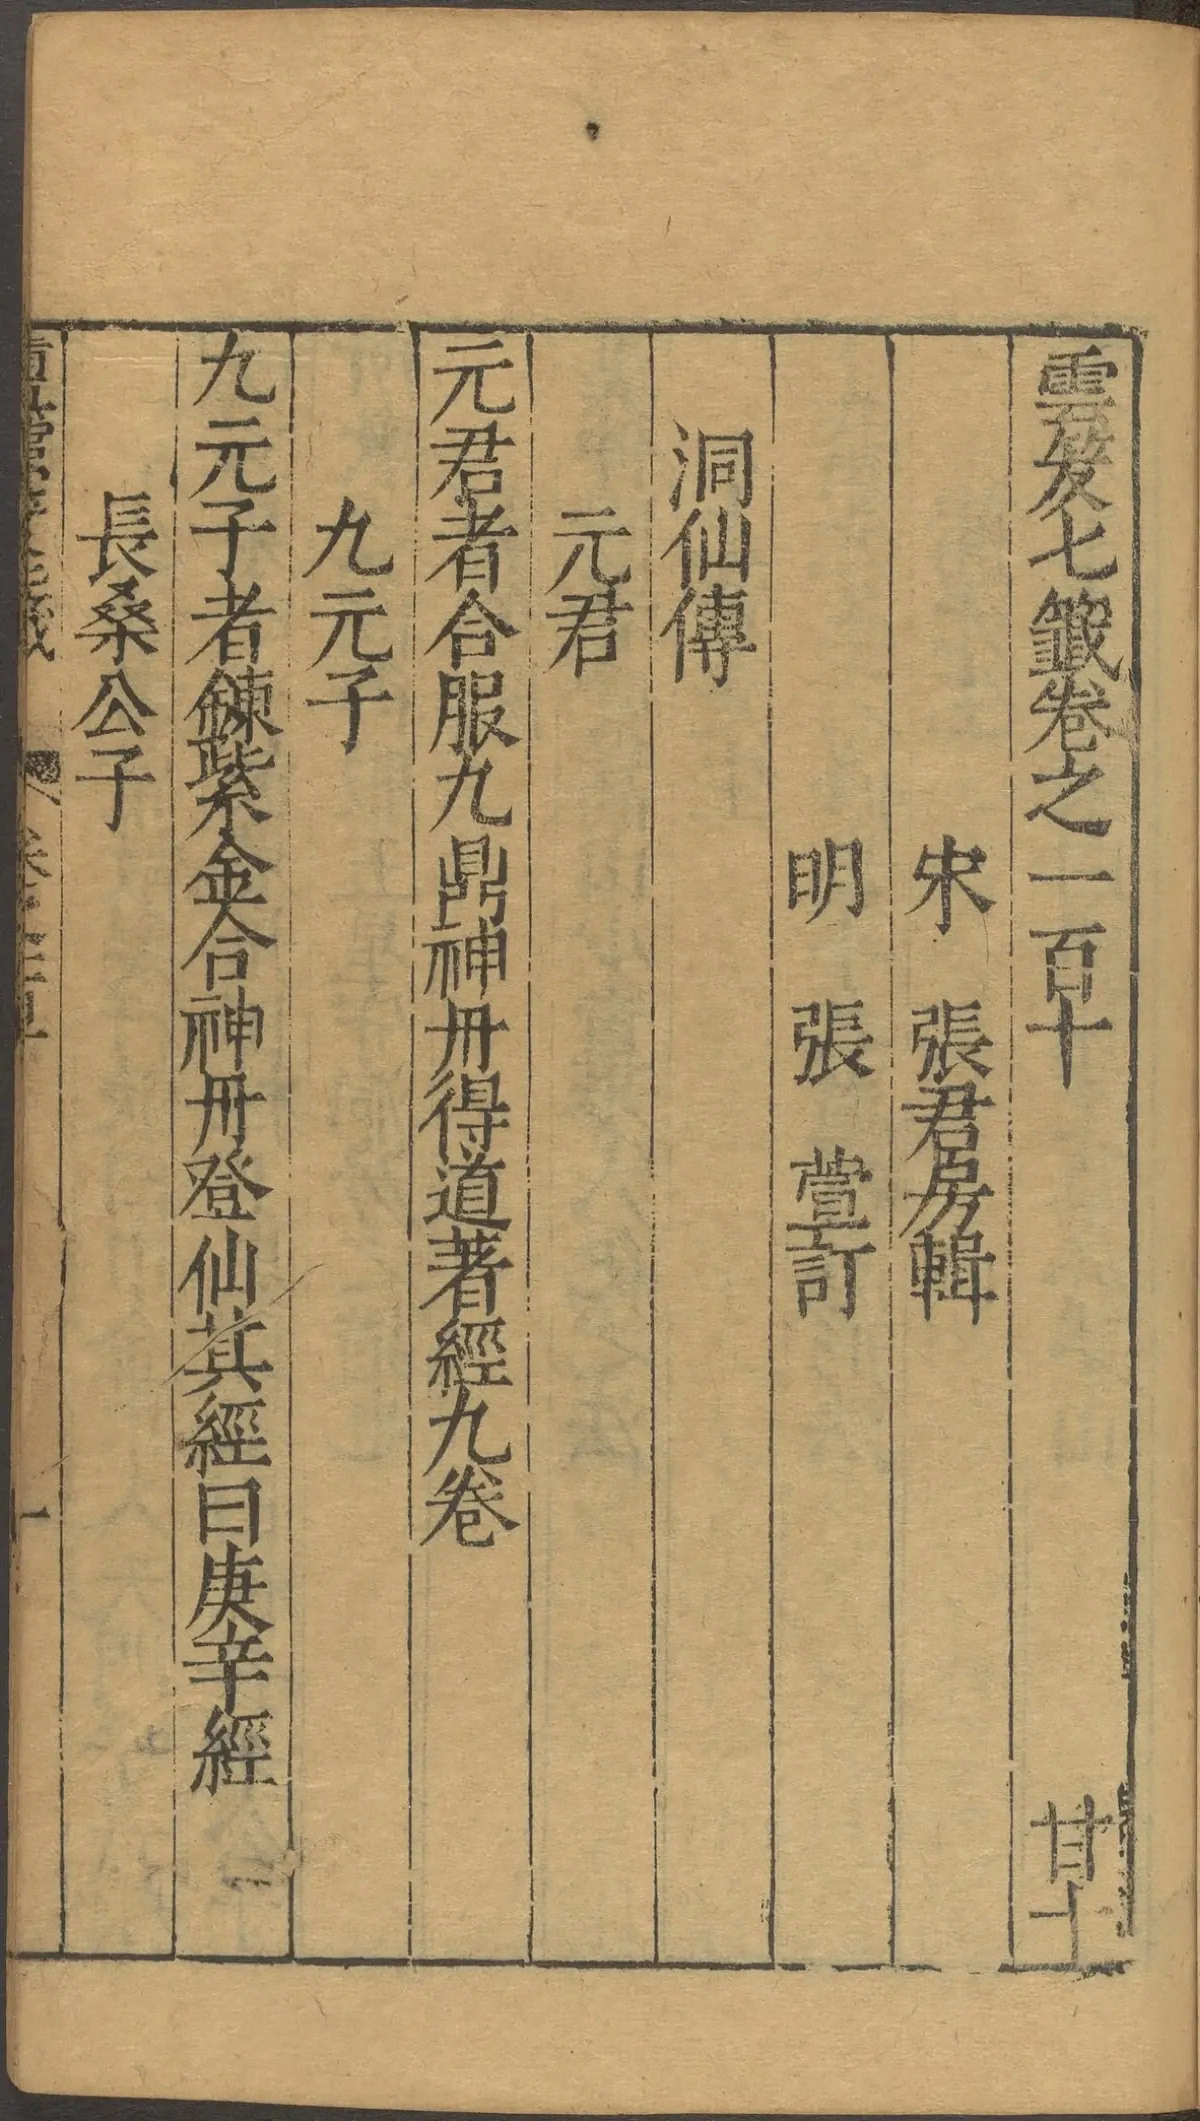 雲笈七籤卷之一百十 甘十
宋 張君房輯
明 張 萱訂
洞仙傳
元君
元君者合服九鼎神丹得道著經九卷
九元子
九元子者鍊紫金合神丹登仙其經曰庚辛經
長桑公子